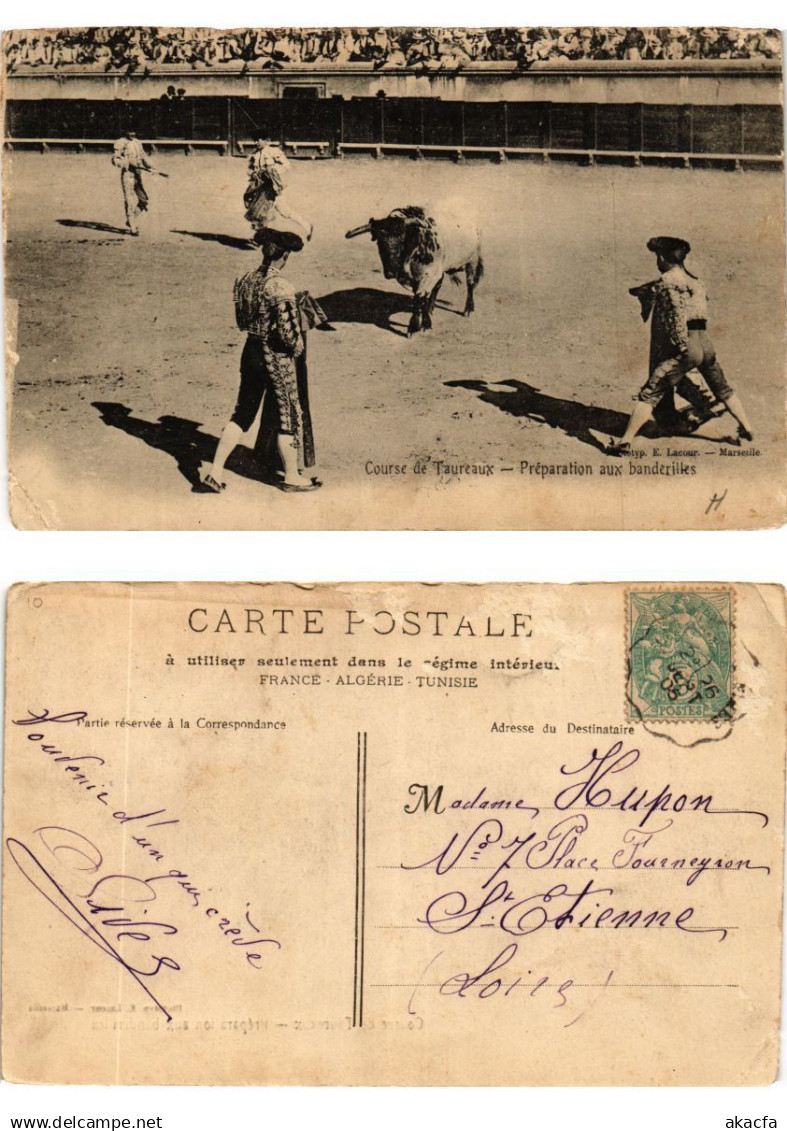 Phototyp. E. Lacour. — Marseille
Course de Taureaux — Préparation aux banderilles
H
10
CARTE POSTALE
à utiliser seulement dans le régime intérieur
FRANCE - ALGÉRIE - TUNISIE
POSTES
Partie réservée à la Correspondance
Adresse du Destinataire
Souvenir d'un qui, crève
Madame Hupon
No 7 Place Fourneyron
St. Etienne
(Loire)
akacfa